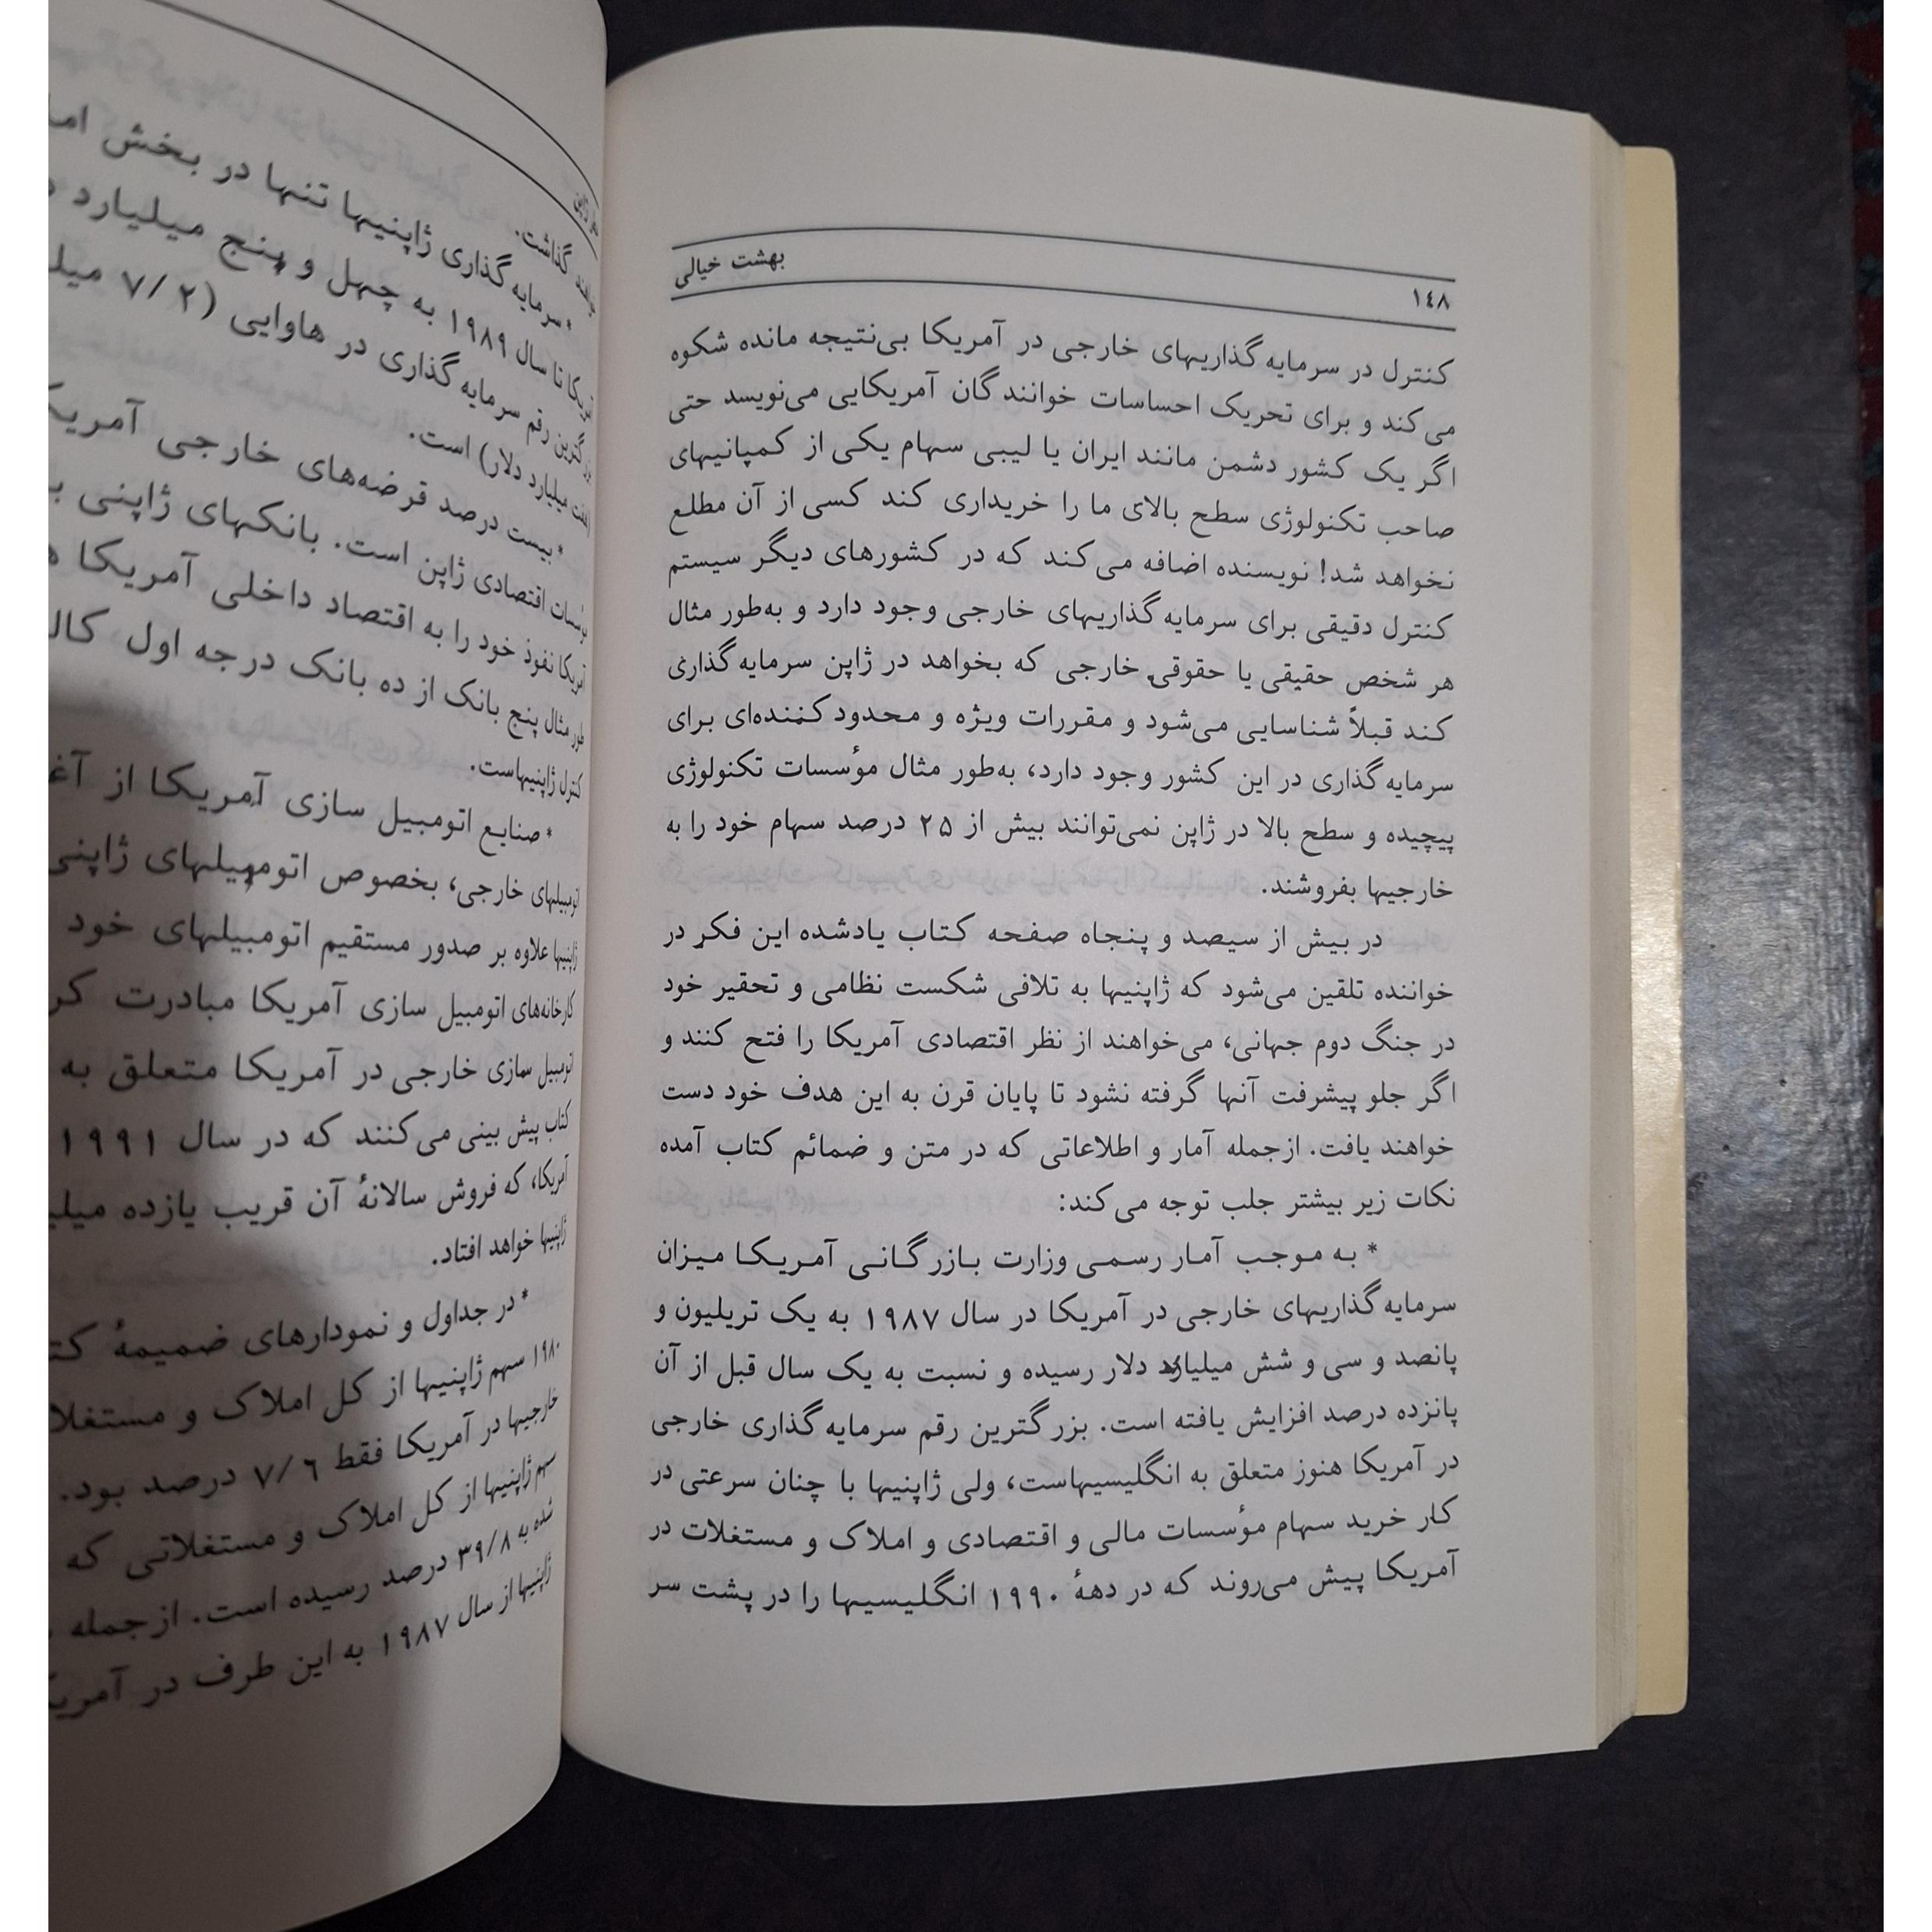 ۱۴۸
بهشت خیالی
کنترل در سرمایه‌گذاریهای خارجی در آمریکا بی‌نتیجه مانده شکوه
می‌کند و برای تحریک احساسات خوانندگان آمریکایی می‌نویسد حتی
اگر یک کشور دشمن مانند ایران یا لیبی سهام یکی از کمپانیهای
صاحب تکنولوژی سطح بالای ما را خریداری کند کسی از آن مطلع
نخواهد شد! نویسنده اضافه می‌کند که در کشورهای دیگر سیستم
کنترل دقیقی برای سرمایه‌گذاریهای خارجی وجود دارد و به‌طور مثال
هر شخص حقیقی یا حقوقی خارجی که بخواهد در ژاپن سرمایه‌گذاری
کند قبلاً شناسایی می‌شود و مقررات ویژه و محدودکننده‌ای برای
سرمایه‌گذاری در این کشور وجود دارد، به‌طور مثال مؤسسات تکنولوژی
پیچیده و سطح بالا در ژاپن نمی‌توانند بیش از ۲۵ درصد سهام خود را به
خارجیها بفروشند.
در بیش از سیصد و پنجاه صفحه کتاب یادشده این فکر در
خواننده تلقین می‌شود که ژاپنیها به تلافی شکست نظامی و تحقیر خود
در جنگ دوم جهانی، می‌خواهند از نظر اقتصادی آمریکا را فتح کنند و
اگر جلو پیشرفت آنها گرفته نشود تا پایان قرن به این هدف خود دست
خواهند یافت. ازجمله آمار و اطلاعاتی که در متن و ضمائم کتاب آمده
نکات زیر بیشتر جلب توجه می‌کند:
* به موجب آمار رسمی وزارت بازرگانی آمریکا میزان
سرمایه‌گذاریهای خارجی در آمریکا در سال ۱۹۸۷ به یک تریلیون و
پانصد و سی و شش میلیارد دلار رسیده و نسبت به یک سال قبل از آن
پانزده درصد افزایش یافته است. بزرگترین رقم سرمایه‌گذاری خارجی
در آمریکا هنوز متعلق به انگلیسیهاست، ولی ژاپنیها با چنان سرعتی در
کار خرید سهام مؤسسات مالی و اقتصادی و املاک و مستغلات در
آمریکا پیش می‌روند که در دههٔ ۱۹۹۰ انگلیسیها را در پشت سر
گذاشت.
* سرمایه‌گذاری ژاپنیها تنها در بخش
تا سال ۱۹۸۹ به چهل و پنج میلیارد
رقم سرمایه‌گذاری در هاوایی (۷/۲
میلیارد دلار) است.
* بیست درصد قرضه‌های خارجی
اقتصادی ژاپن است. بانکهای ژاپنی
آمریکا نفوذ خود را به اقتصاد داخلی آمریکا
طور مثال پنج بانک از ده بانک درجه اول
کنترل ژاپنیهاست.
* صنایع اتومبیل سازی آمریکا از
اتومبیلهای خارجی، بخصوص اتومبیلهای ژاپنی
ژاپنیها علاوه بر صدور مستقیم اتومبیلهای خود
کارخانه‌های اتومبیل سازی آمریکا مبادرت
اتومبیل سازی خارجی در آمریکا متعلق به
کتاب پیش بینی می‌کنند که در سال ۱۹۹۱
آمریکا، که فروش سالانهٔ آن قریب یازده
ژاپنیها خواهد افتاد.
* در جداول و نمودارهای ضمیمهٔ
۱۹۸۰ سهم ژاپنیها از کل املاک و
خارجیها در آمریکا فقط ۷/۶ درصد بود.
سهم ژاپنیها از کل املاک و مستغلاتی که
شده به ۳۹/۸ درصد رسیده است. ازجمله
ژاپنیها از سال ۱۹۸۷ به این طرف در